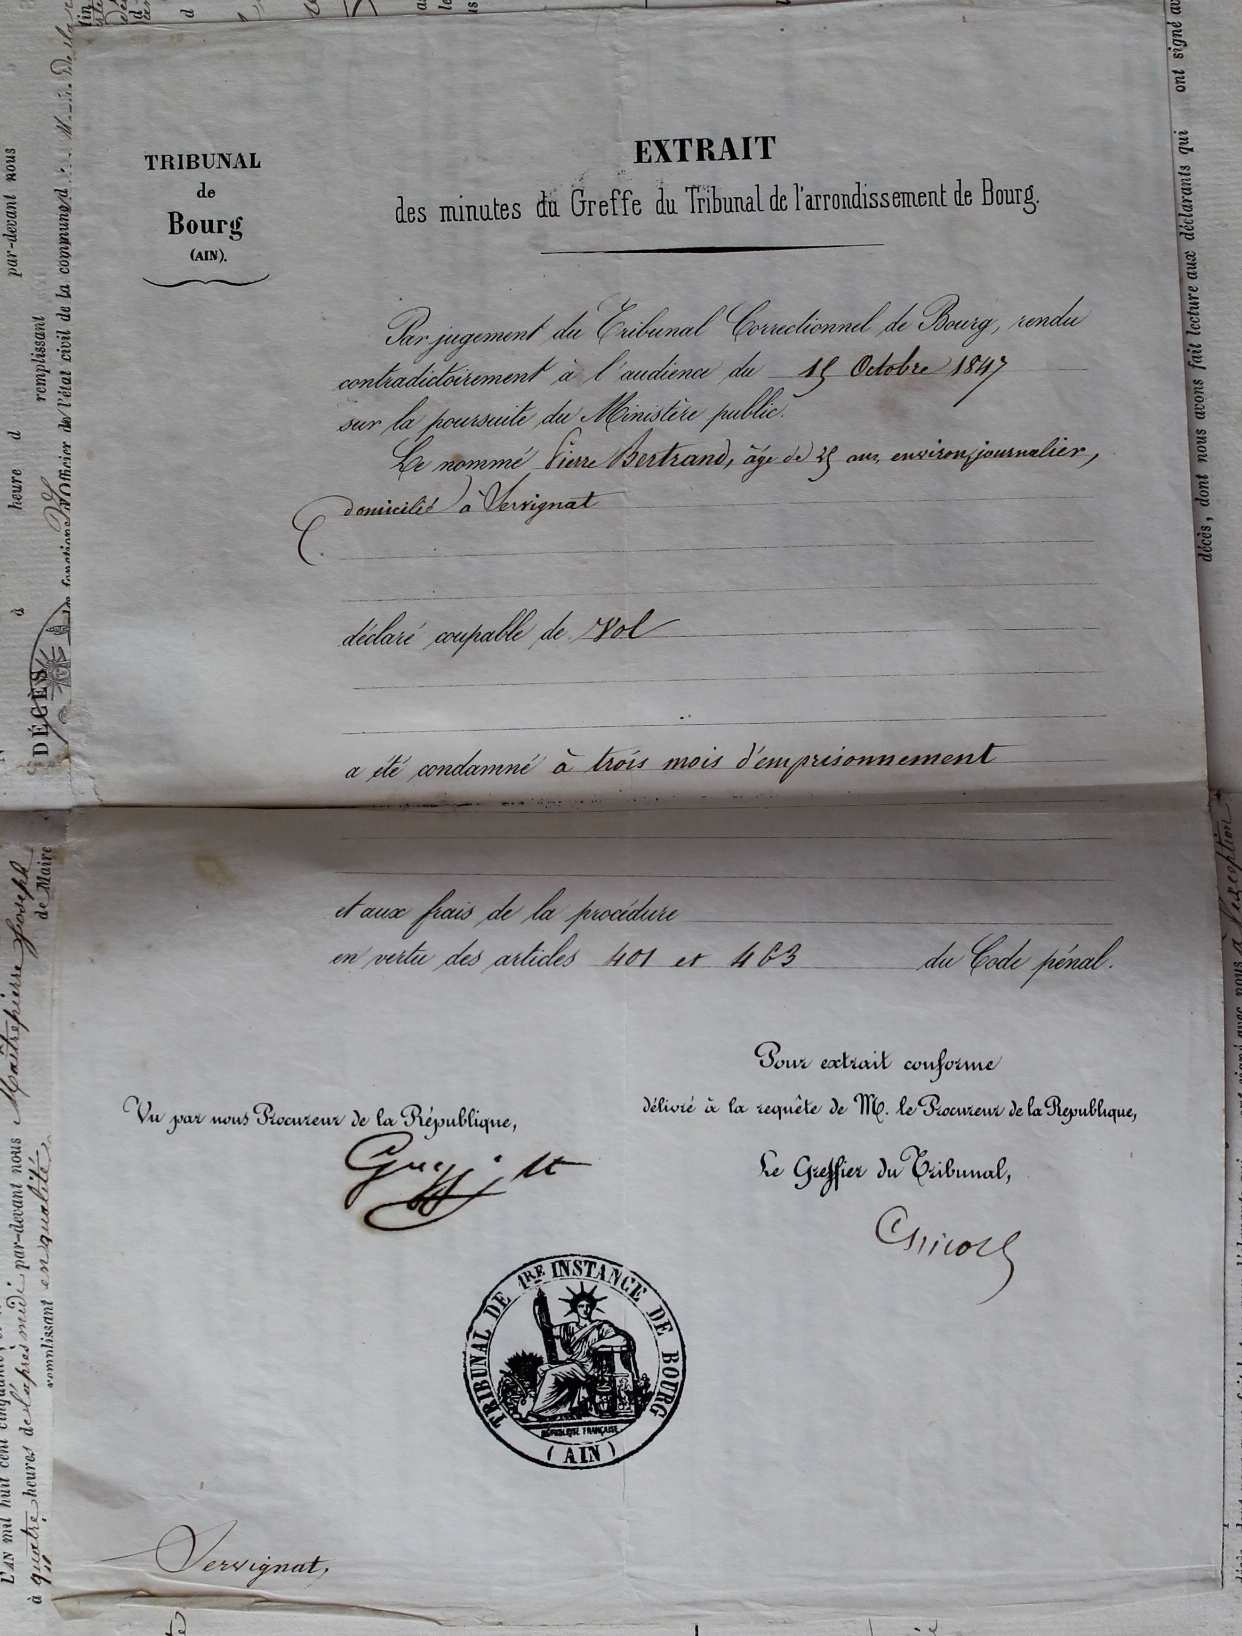 TRIBUNAL
de
Bourg
(AIN).
EXTRAIT
des minutes du Greffe du Tribunal de l'arrondissement de Bourg.
Par jugement du Tribunal Correctionnel de Bourg, rendu
contradictoirement à l'audience du 15 Octobre 1847
sur la poursuite du Ministère public.
Le nommé Pierre Bertrand, âgé de 25 ans, environ, journalier,
domicilié à Servignat
déclaré coupable de Vol
a été condamné à trois mois d'emprisonnement
et aux frais de la procédure
en vertu des articles 401 et 463 du Code pénal.
Pour extrait conforme
délivré à la requête de M. le Procureur de la Republique,
Le Greffier du Tribunal,
Vu par nous Procureur de la République,
TRIBUNAL DE 1RE INSTANCE DE BOURG
RÉPUBLIQUE FRANÇAISE
(AIN)
Servignat,
par-devant nous
remplissant
heure d
à
DÉCÈS
Officier de l'état civil de la commune d
L'AN mil huit cent cinquante
à quatre heures de l'après midi par-devant nous Maîtrepierre Joseph
remplissant en qualité de Maire
ont signé
décès, dont nous avons fait lecture aux déclarants qui
à l'exception